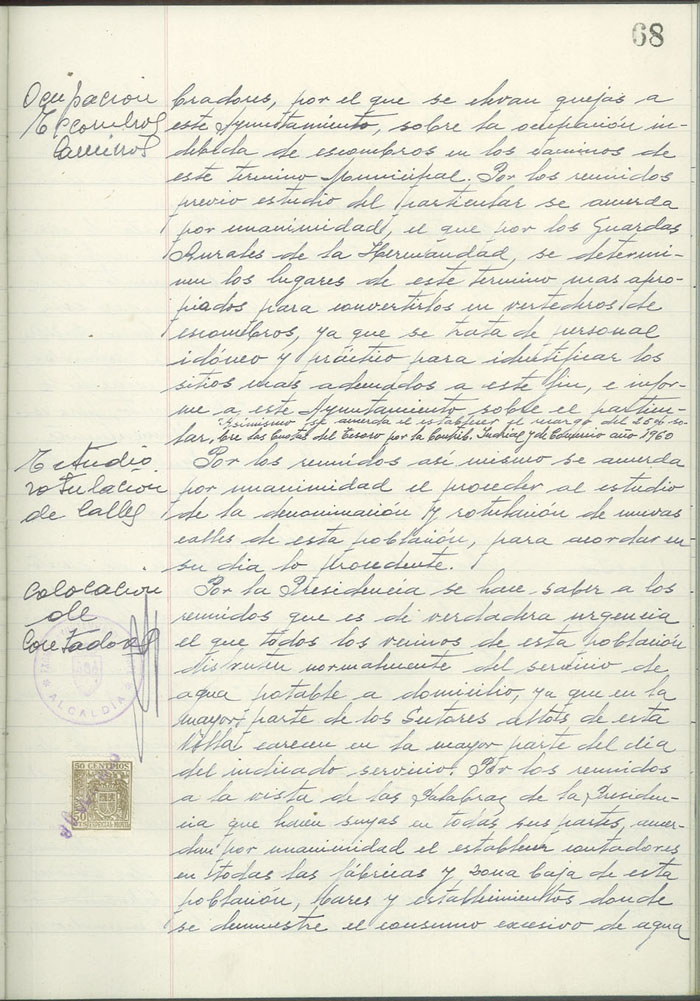 68
Ocupacion
Escombros
Caminos
bradores, por el que se elevan quejas a
este Ayuntamiento, sobre la ocupación in-
debida de escombros en los caminos de
este termino Municipal. Por los reunidos
previo estudio del particular se acuerda
por unanimidad, el que por los Guardas
Rurales de la Hermandad, se determi-
nen los lugares de este termino mas apro-
piados para convertirlos en vertederos de
escombros, ya que se trata de personal
idóneo y práctico para identificar los
sitios más adecuados a este fin, e infor-
me a este Ayuntamiento sobre el particu-
lar.
Asimismo se acuerda el establecer el margo del 25% so-
bre las Cuotas del Tesoro por la Contrib. Indrial y de Comercio año 1960
Estudio
rotulacion
de Calles
Por los reunidos así mismo se acuerda
por unanimidad el proceder al estudio
de la denominación y rotulación de nuevas
calles de esta población, para acordar en
su dia lo procedente.
Colocacion
de
Contadores
Por la Presidencia se hace saber a los
reunidos que es de verdadera urgencia
el que todos los vecinos de esta población
disfruten normalmente del servicio de
agua potable a domicilio, ya que en la
mayor parte de los Sectores altos de esta
Villa carecen en la mayor parte del día
del indicado servicio. Por los reunidos
a la vista de las Palabras de la Presiden-
cia que hacen suyas en todas sus partes, acuer-
dan por unanimidad el establecer contadores
en todas las fábricas y zona baja de esta
población, Bares y establecimientos donde
se demuestre el consumo excesivo de agua
ALCALDÍA
50 CENTIMOS
50